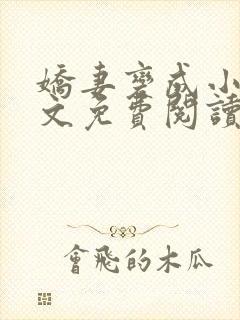 嬌妻變成小
文免費閱讀
會飛的木瓜